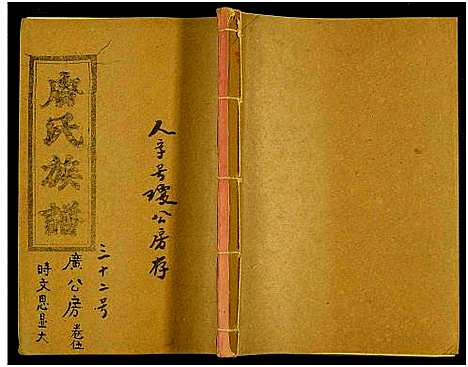 人字号瓊公房存
三十二号
唐氏族譜
廣公房 卷伍
時文恩显大